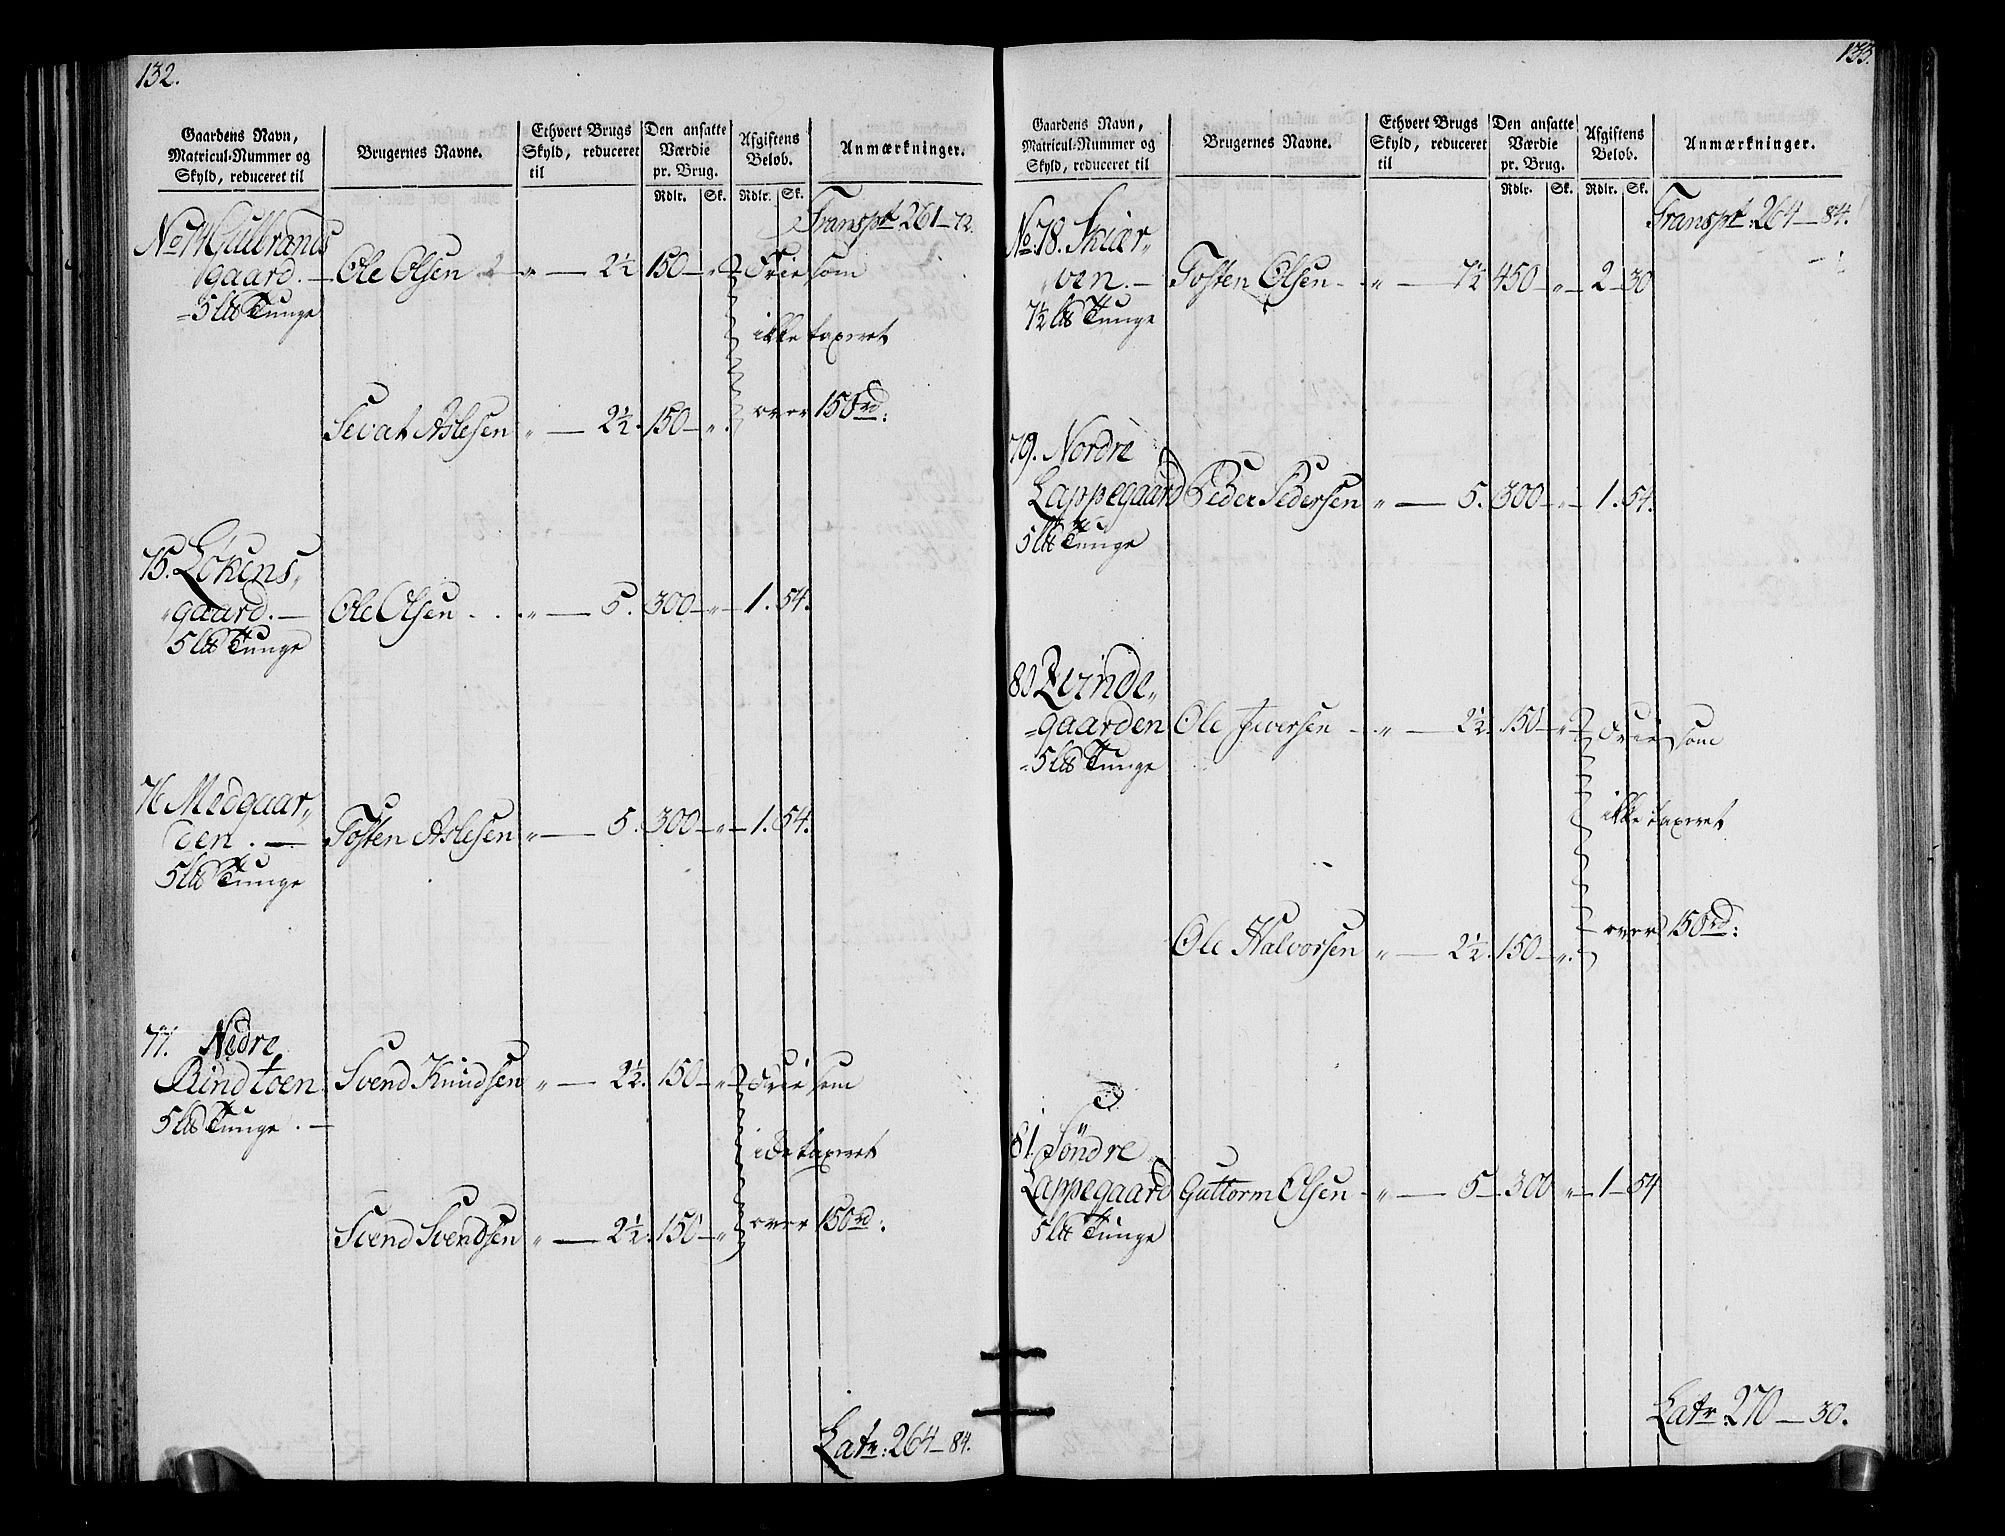 132.
Gaardens Navn, Matricul-Nummer og Skyld, reduceret til
Brugernes Navne.
Ethvert Brugs Skyld, reduceret til
Den ansatte Værdie pr. Brug.
Afgiftens Belob.
Anmærkninger.
Rdlr. Sk. Rdlr. Sk.
Transpt 261 — 72.
No 74 Gulbrands
gaard. — Ole Olsen „ — 2½ 150 — „ Frie som
5 ltt Tunge
ikke taxeret
Sevat Aslesen „ — 2½. 150 — „. over 150 rd:
75. Lökens„
„gaard. — Ole Olsen . . „ — 5. 300 — „ — 1. 54.
5 ltt Tunge
76 Medgaar„
den. — Tosten Aslesen „ — 5. 300 — „ — 1. 54.
5 ltt Tunge
77. Nedre
Rindtoen Svend Knudsen „ — 2½. 150 — „ Frie som
5 ltt Tunge . —
ikke taxeret
Svend Svendsen „ — 2½. 150 — „ over 150 rd:
Latr: 264 — 84.
133.
Gaardens Navn, Matricul-Nummer og Skyld, reduceret til
Brugernes Navne.
Ethvert Brugs Skyld, reduceret til
Den ansatte Værdie pr. Brug.
Afgiftens Belob.
Anmærkninger.
Rdlr. Sk. Rdlr. Sk.
Transpt: 264 — 84.
No 78. Skiær„
„ven. — Tosten Olsen — „ — 7½ 450 — „ — 2 — 30
7½ ltt Tunge
79. Nordre
Lappegaard Peder Pedersen „ — 5. 300 — „ — 1. 54.
5 ltt Tunge
80 Qvinde„
„gaarden Ole Iversen — „ — 2½. 150 — „ Frie som
5 ltt Tunge
ikke taxeret
Ole Halvorsen „ — 2½. 150 — „. over 150 rd:
81. Söndre
Lappegaard Guttorm Olsen — „ — 5 — 300 „ — 1 — 54
5 ltt Tunge
Latr: 270 — 30.